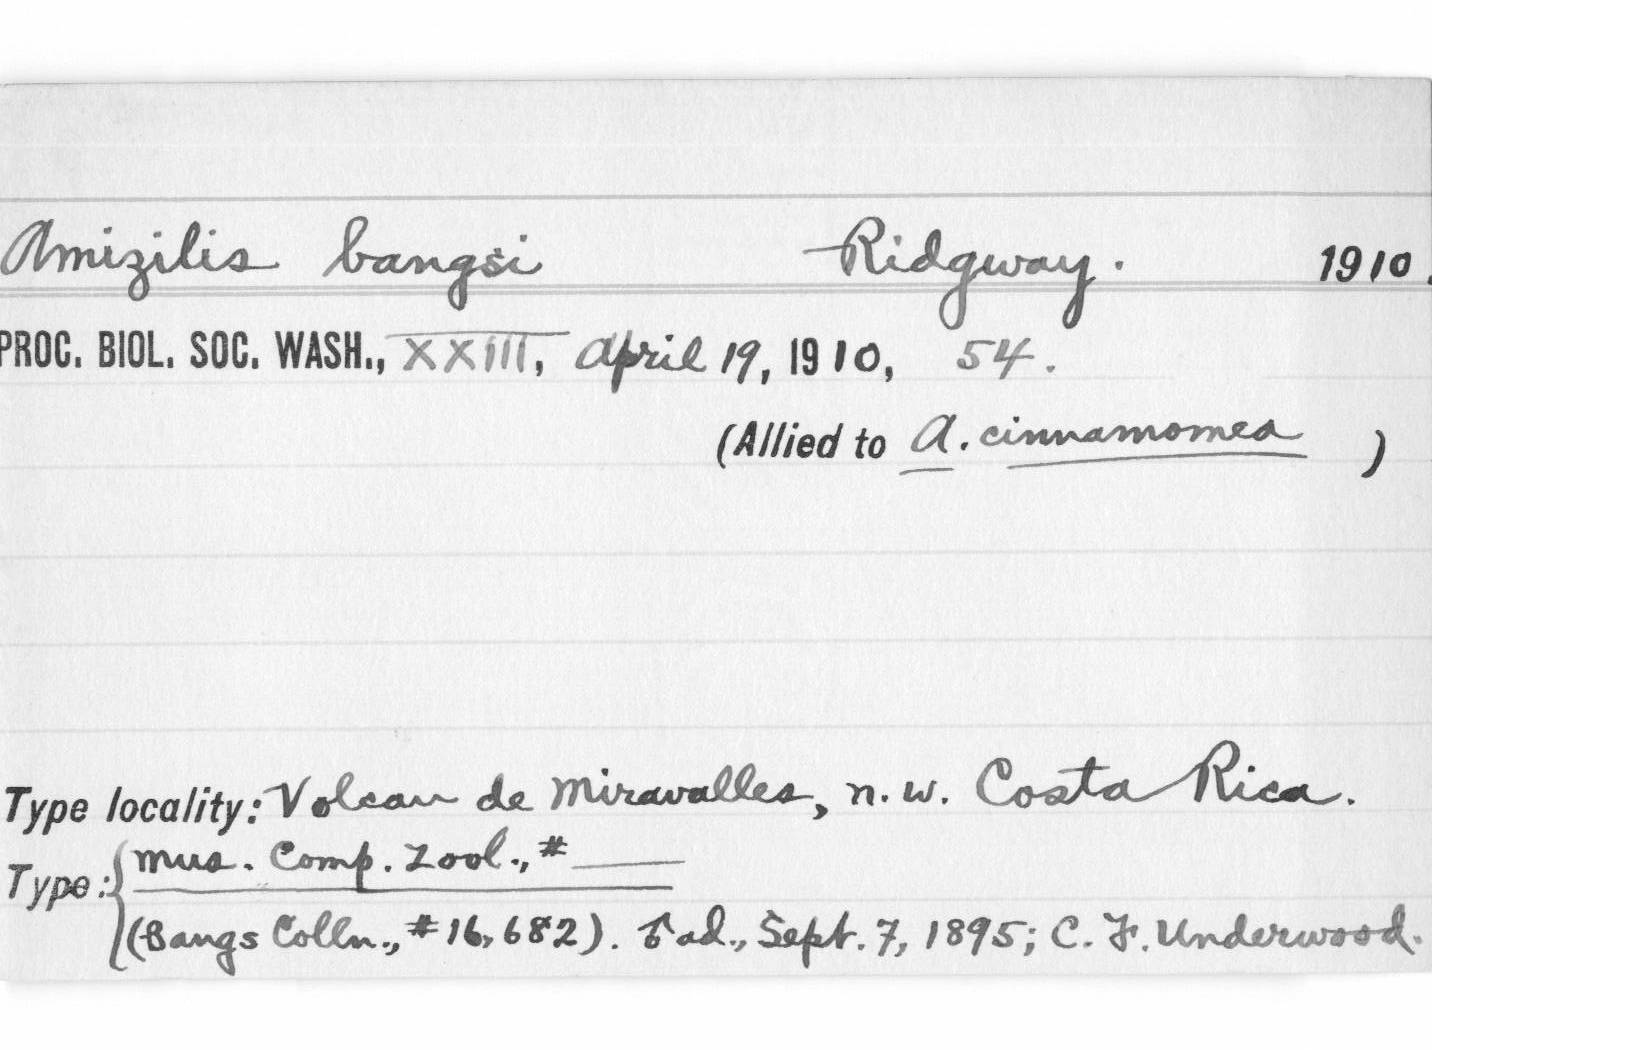 Amizilis bangsi Ridgway. 1910.
PROC. BIOL. SOC. WASH., XXIII, April 19, 1910, 54.
(Allied to A. cinnamomea )
Type locality: Volcan de Miravalles, n.w. Costa Rica.
Type: { Mus. Comp. Zool., # ____
(Bangs Colln., # 16,682). ♂ ad., Sept. 7, 1895; C. F. Underwood.